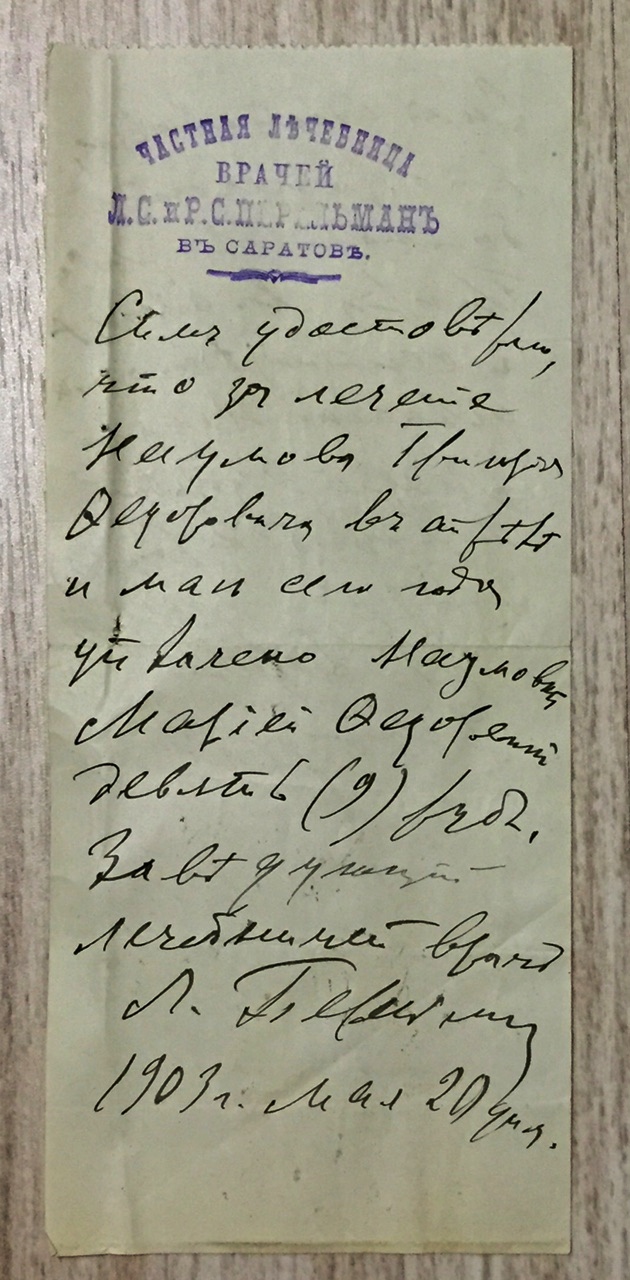 ЧАСТНАЯ ЛѢЧЕБНИЦА
ВРАЧЕЙ
Л.С. и Р.С. ПЕРЕЛЬМАНЪ
ВЪ САРАТОВѢ.
Симъ удостовѣряю,
что за лечение
Наумова Григорія
Ѳедоровича въ апрѣлѣ
и маѣ сего года
уплачено Наумовой
Маріей Ѳедоровной
девять (9) руб.
Завѣдующій
лечебницей врачъ
Л. Перельманъ
1903 г. мая 20 дня.